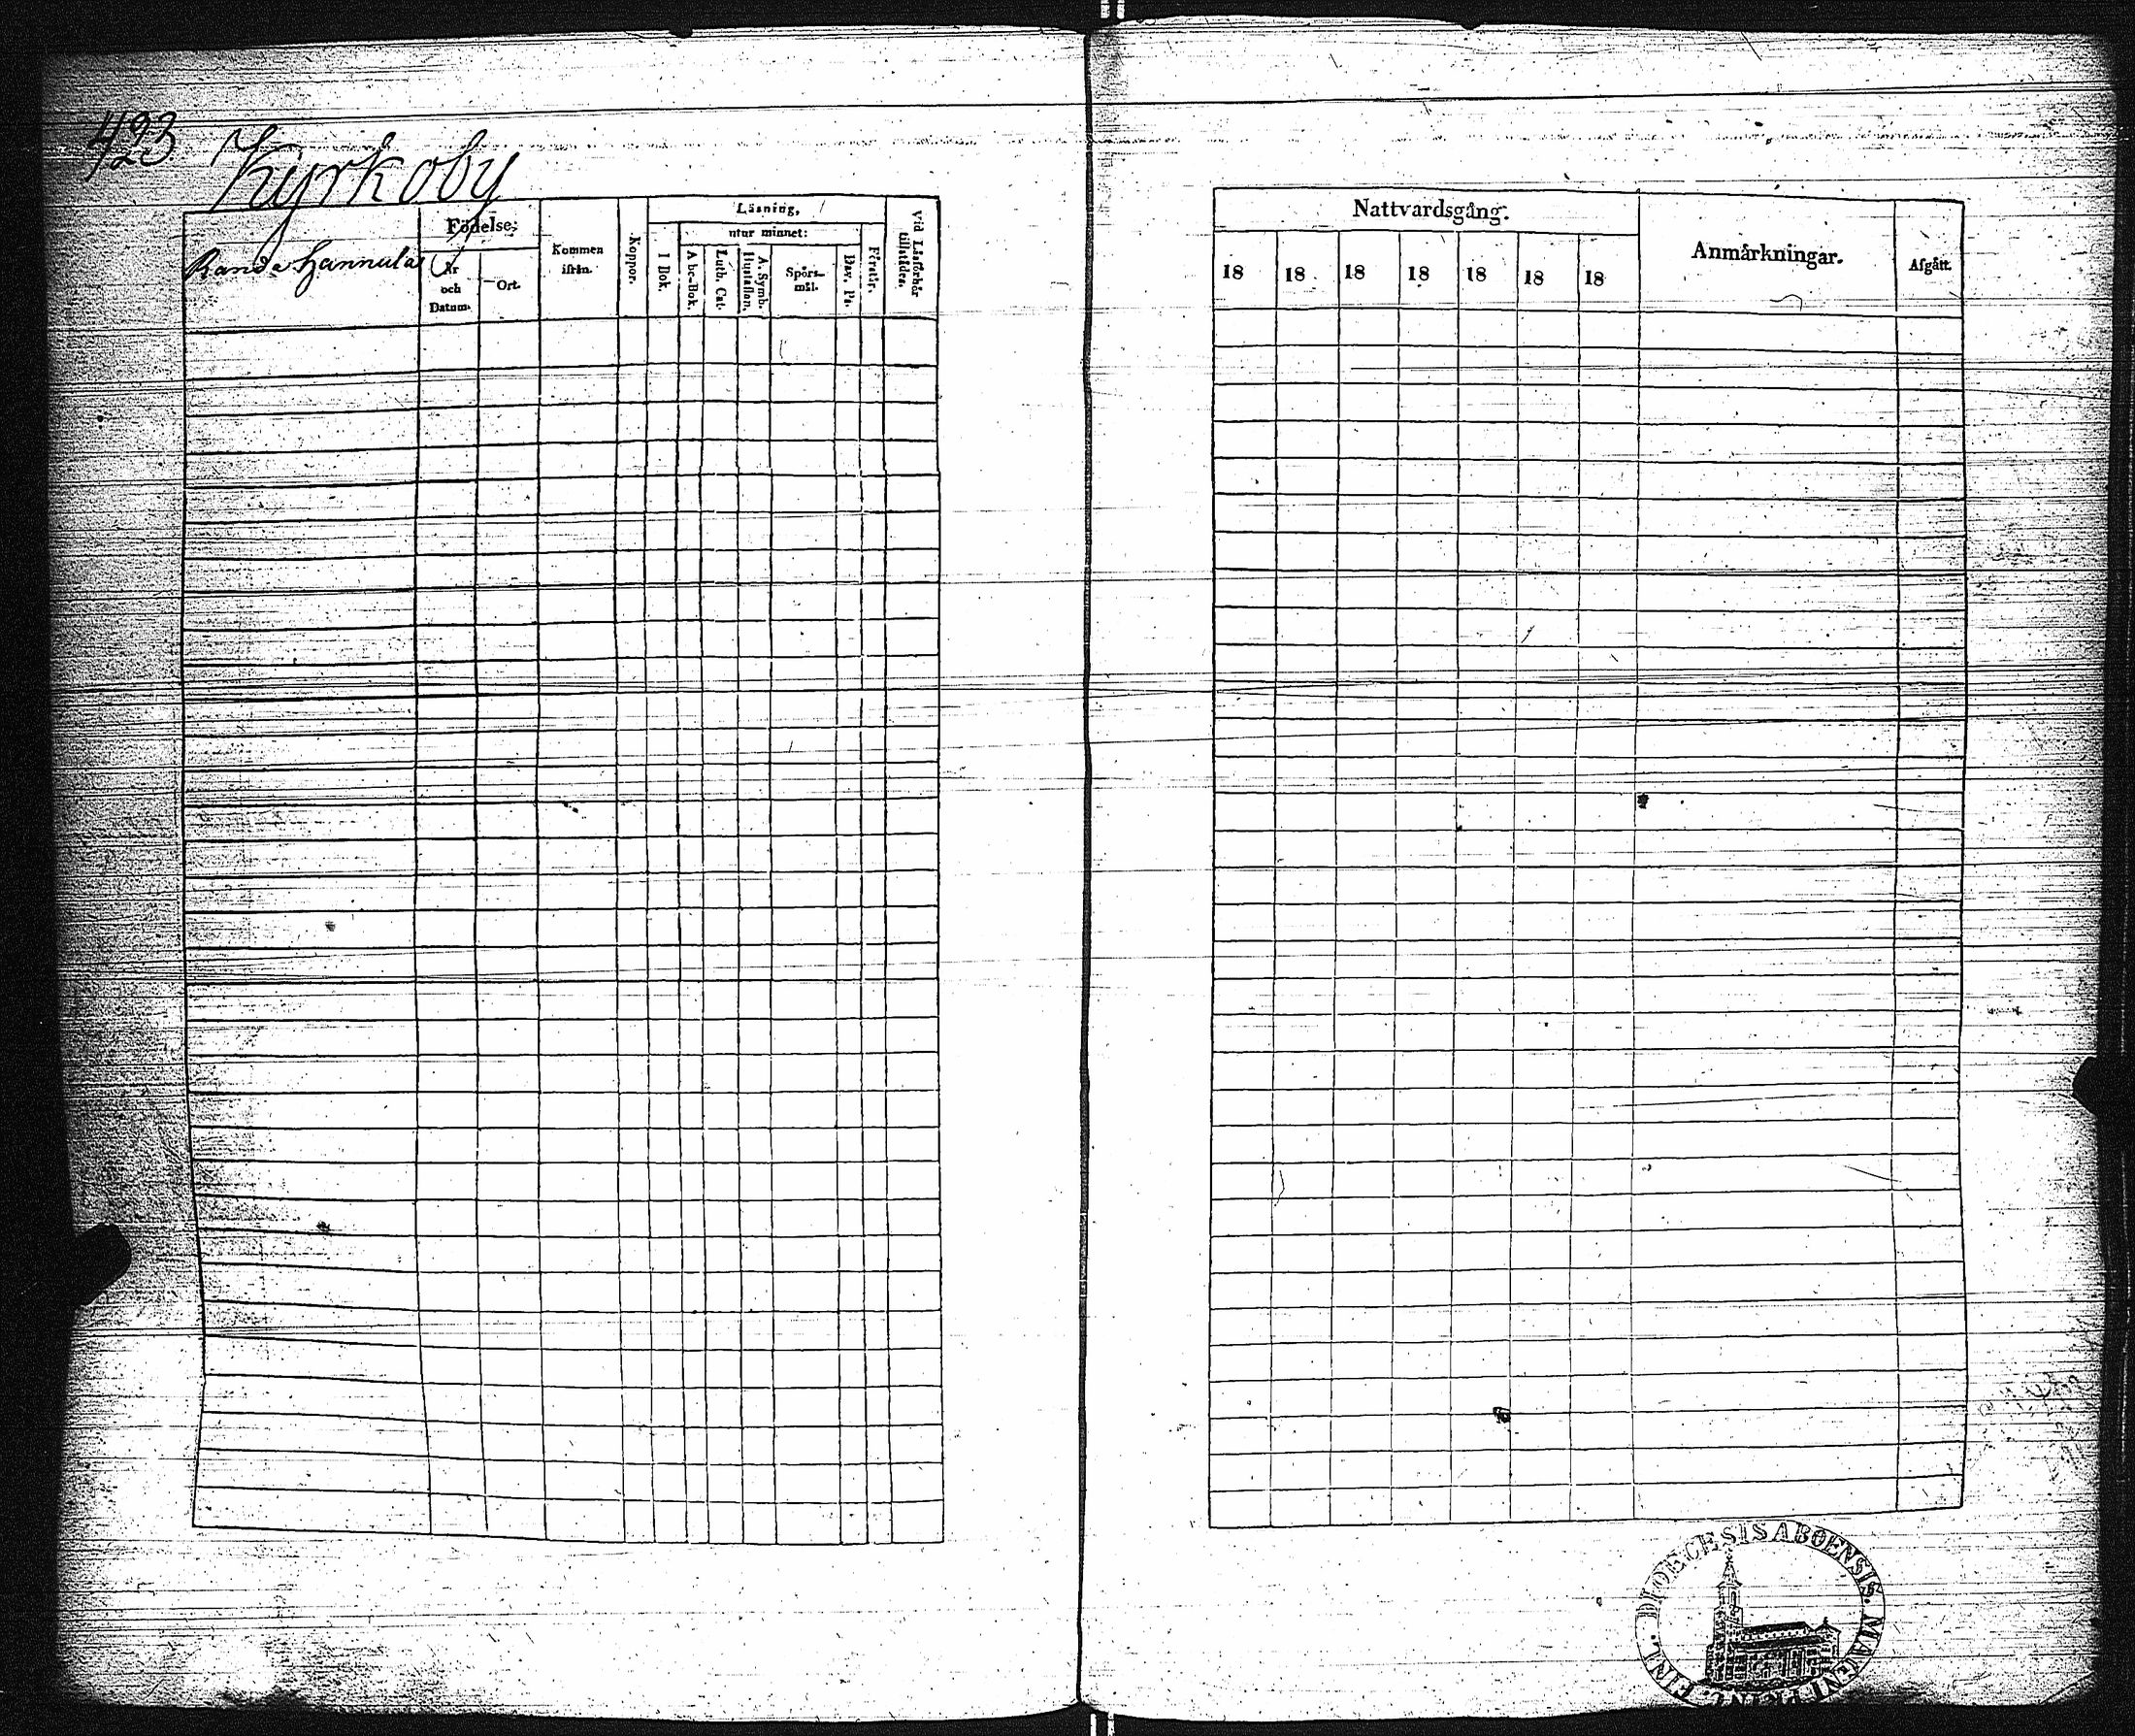 423
Kyrkoby
Randa Hannula
Födelse:
År och Datum.
Ort.
Kommen ifrån.
Koppor.
Läsning,
utur minnet:
I Bok.
Abc-Bok.
Luth. Cat.
A. Symb. Hustaflan.
Spörsmål.
Dav. Ps.
Förstår.
Vid Läsförhör tillstädes.
Nattvardsgång.
18 18 18 18 18 18 18
Anmärkningar.
Afgått.
DIOECESIS ABOENSIS. MAGNI PRINC. FINL.